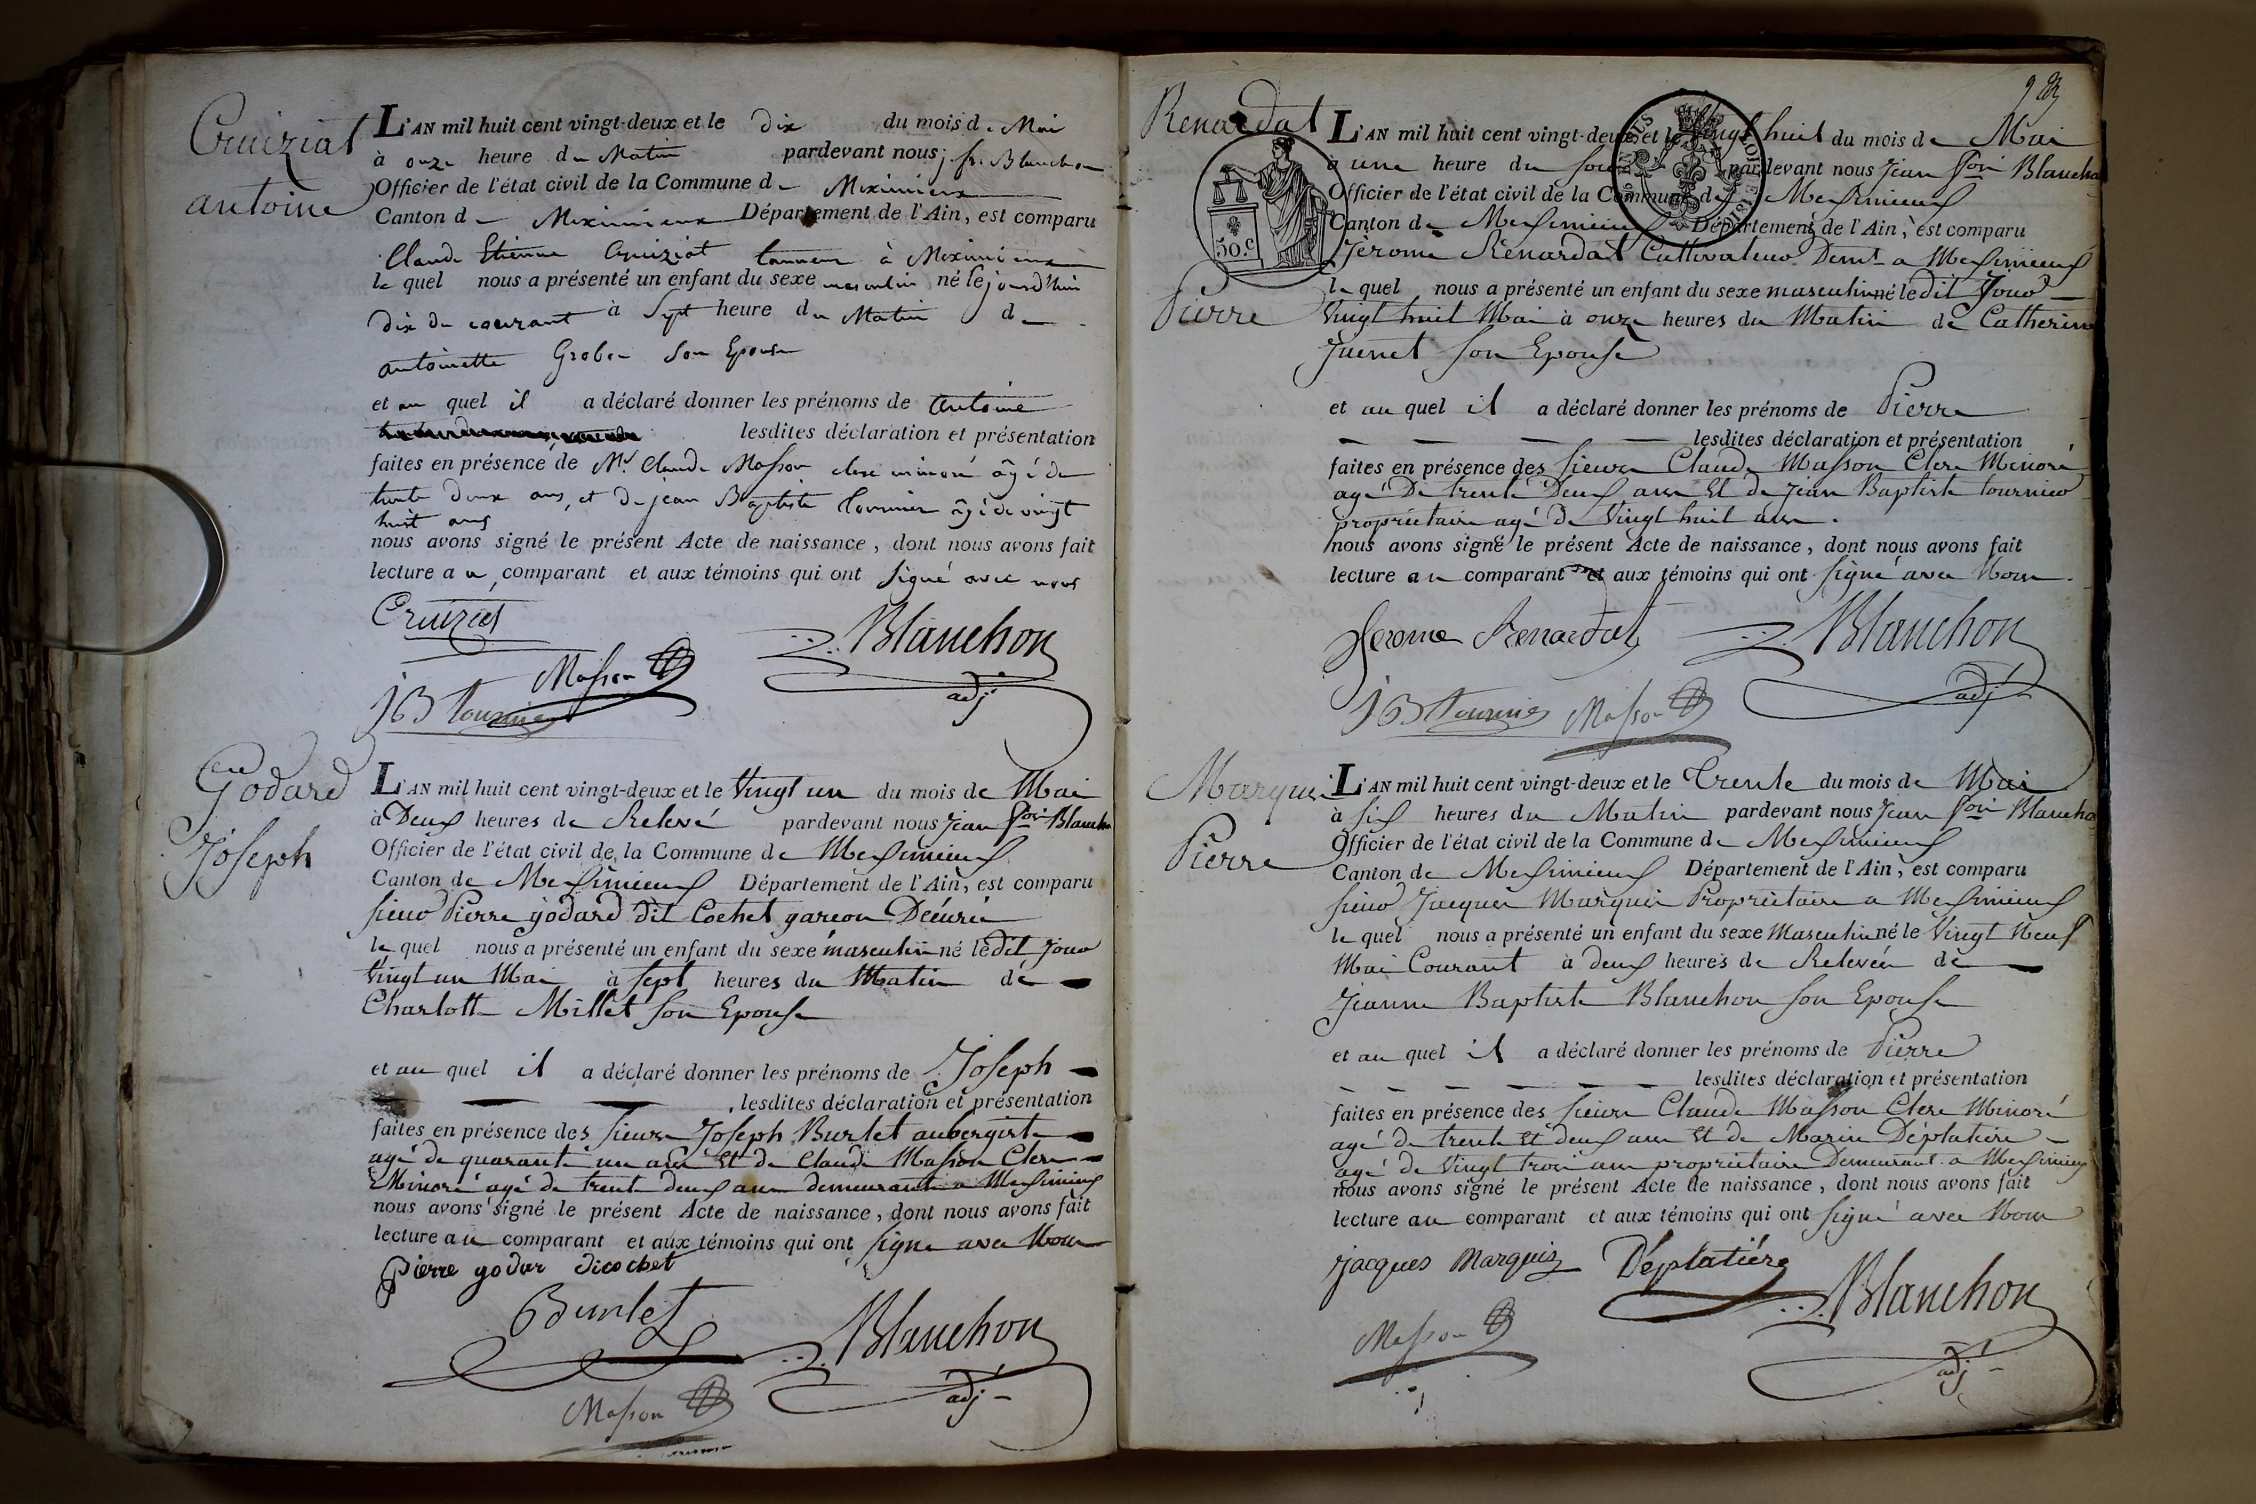 Cruiziat
antoine
L'AN mil huit cent vingt-deux et le dix du mois de Mai
à onze heure du Matin pardevant nous j. fr. Blanchon
Officier de l'état civil de la Commune de Meximieux
Canton de Meximieux Département de l'Ain, est comparu
Claude Etienne Cruiziat tanneur à Meximieux
le quel nous a présenté un enfant du sexe masculin né le jourd'hui
dix du courant à Sept heure du Matin de
antoinette Grobon Son Epouse
et au quel il a déclaré donner les prénoms de antoine
lesdites déclaration et présentation
faites en présence de Mr. Claude Masson clerc minoré âgé de
trente deux ans, et de jean Baptiste Tournier âgé de vingt
huit ans
nous avons signé le présent Acte de naissance, dont nous avons fait
lecture au comparant et aux témoins qui ont signé avec nous
Cruiziat
Blanchon
adj
Masson
JB tournier
Godard
Joseph
L'AN mil huit cent vingt-deux et le Vingt un du mois de Mai
à Deux heures de Relevé pardevant nous Jean foi Blanchon
Officier de l'état civil de la Commune de Meximieux
Canton de Meximieux Département de l'Ain, est comparu
sieur Pierre godard dit Cochet garçon Décurié
le quel nous a présenté un enfant du sexe masculin né le dit jour
Vingt un Mai à sept heures du Matin de
Charlotte Millet son Epouse
et au quel il a déclaré donner les prénoms de Joseph
lesdites déclaration et présentation
faites en présence des sieurs Joseph Burlet aubergiste
agé de quarante un ans Et de Claude Masson Clerc
Minoré agé de trente deux ans demeurants a Meximieux
nous avons signé le présent Acte de naissance, dont nous avons fait
lecture au comparant et aux témoins qui ont signé avec Nous
Pierre godar dicochet
Burlet
Blanchon
adj
Masson
Renardat
Pierre
L'AN mil huit cent vingt-deux et le vingt huit du mois de Mai
à une heure du soir pardevant nous Jean foi Blanchon
Officier de l'état civil de la Commune de Meximieux
Canton de Meximieux Département de l'Ain, est comparu
50 c.
Jèrome Renardat Cultivateur Demt a Meximieux
le quel nous a présenté un enfant du sexe masculin né le dit Jour
Vingt huit Mai à onze heures du Matin de Catherine
Juenet son Epouse
et au quel il a déclaré donner les prénoms de Pierre
lesdites déclaration et présentation
faites en présence des sieurs Claude Masson Clerc Minoré
agé De trente Deux ans Et de Jean Baptiste tournier
propriétaire agé De Vingt huit ans.
nous avons signé le présent Acte de naissance, dont nous avons fait
lecture au comparant et aux témoins qui ont signé avec Nous
Jerome Renardat
Blanchon
adj
JB tournier
Masson
Marquis
Pierre
L'AN mil huit cent vingt-deux et le Trente du mois de Mai
à six heures du Matin pardevant nous Jean foi Blanchon
Officier de l'état civil de la Commune de Meximieux
Canton de Meximieux Département de l'Ain, est comparu
sieur Jacques Marquis Propriétaire a Meximieux
le quel nous a présenté un enfant du sexe Masculin né le Vingt Neuf
Mai Courant à deux heures de Relevée de
Jeanne Baptiste Blanchon son Epouse
et au quel il a déclaré donner les prénoms de Pierre
lesdites déclaration et présentation
faites en présence des sieurs Claude Masson Clerc Minoré
agé de trente Et deux ans Et de Marin Déplatière
agé de Vingt trois ans propriétaire Demeurant a Meximieux
nous avons signé le présent Acte de naissance, dont nous avons fait
lecture au comparant et aux témoins qui ont signé avec Nous
jacques Marquis
Déplatiére
Blanchon
adj
Masson